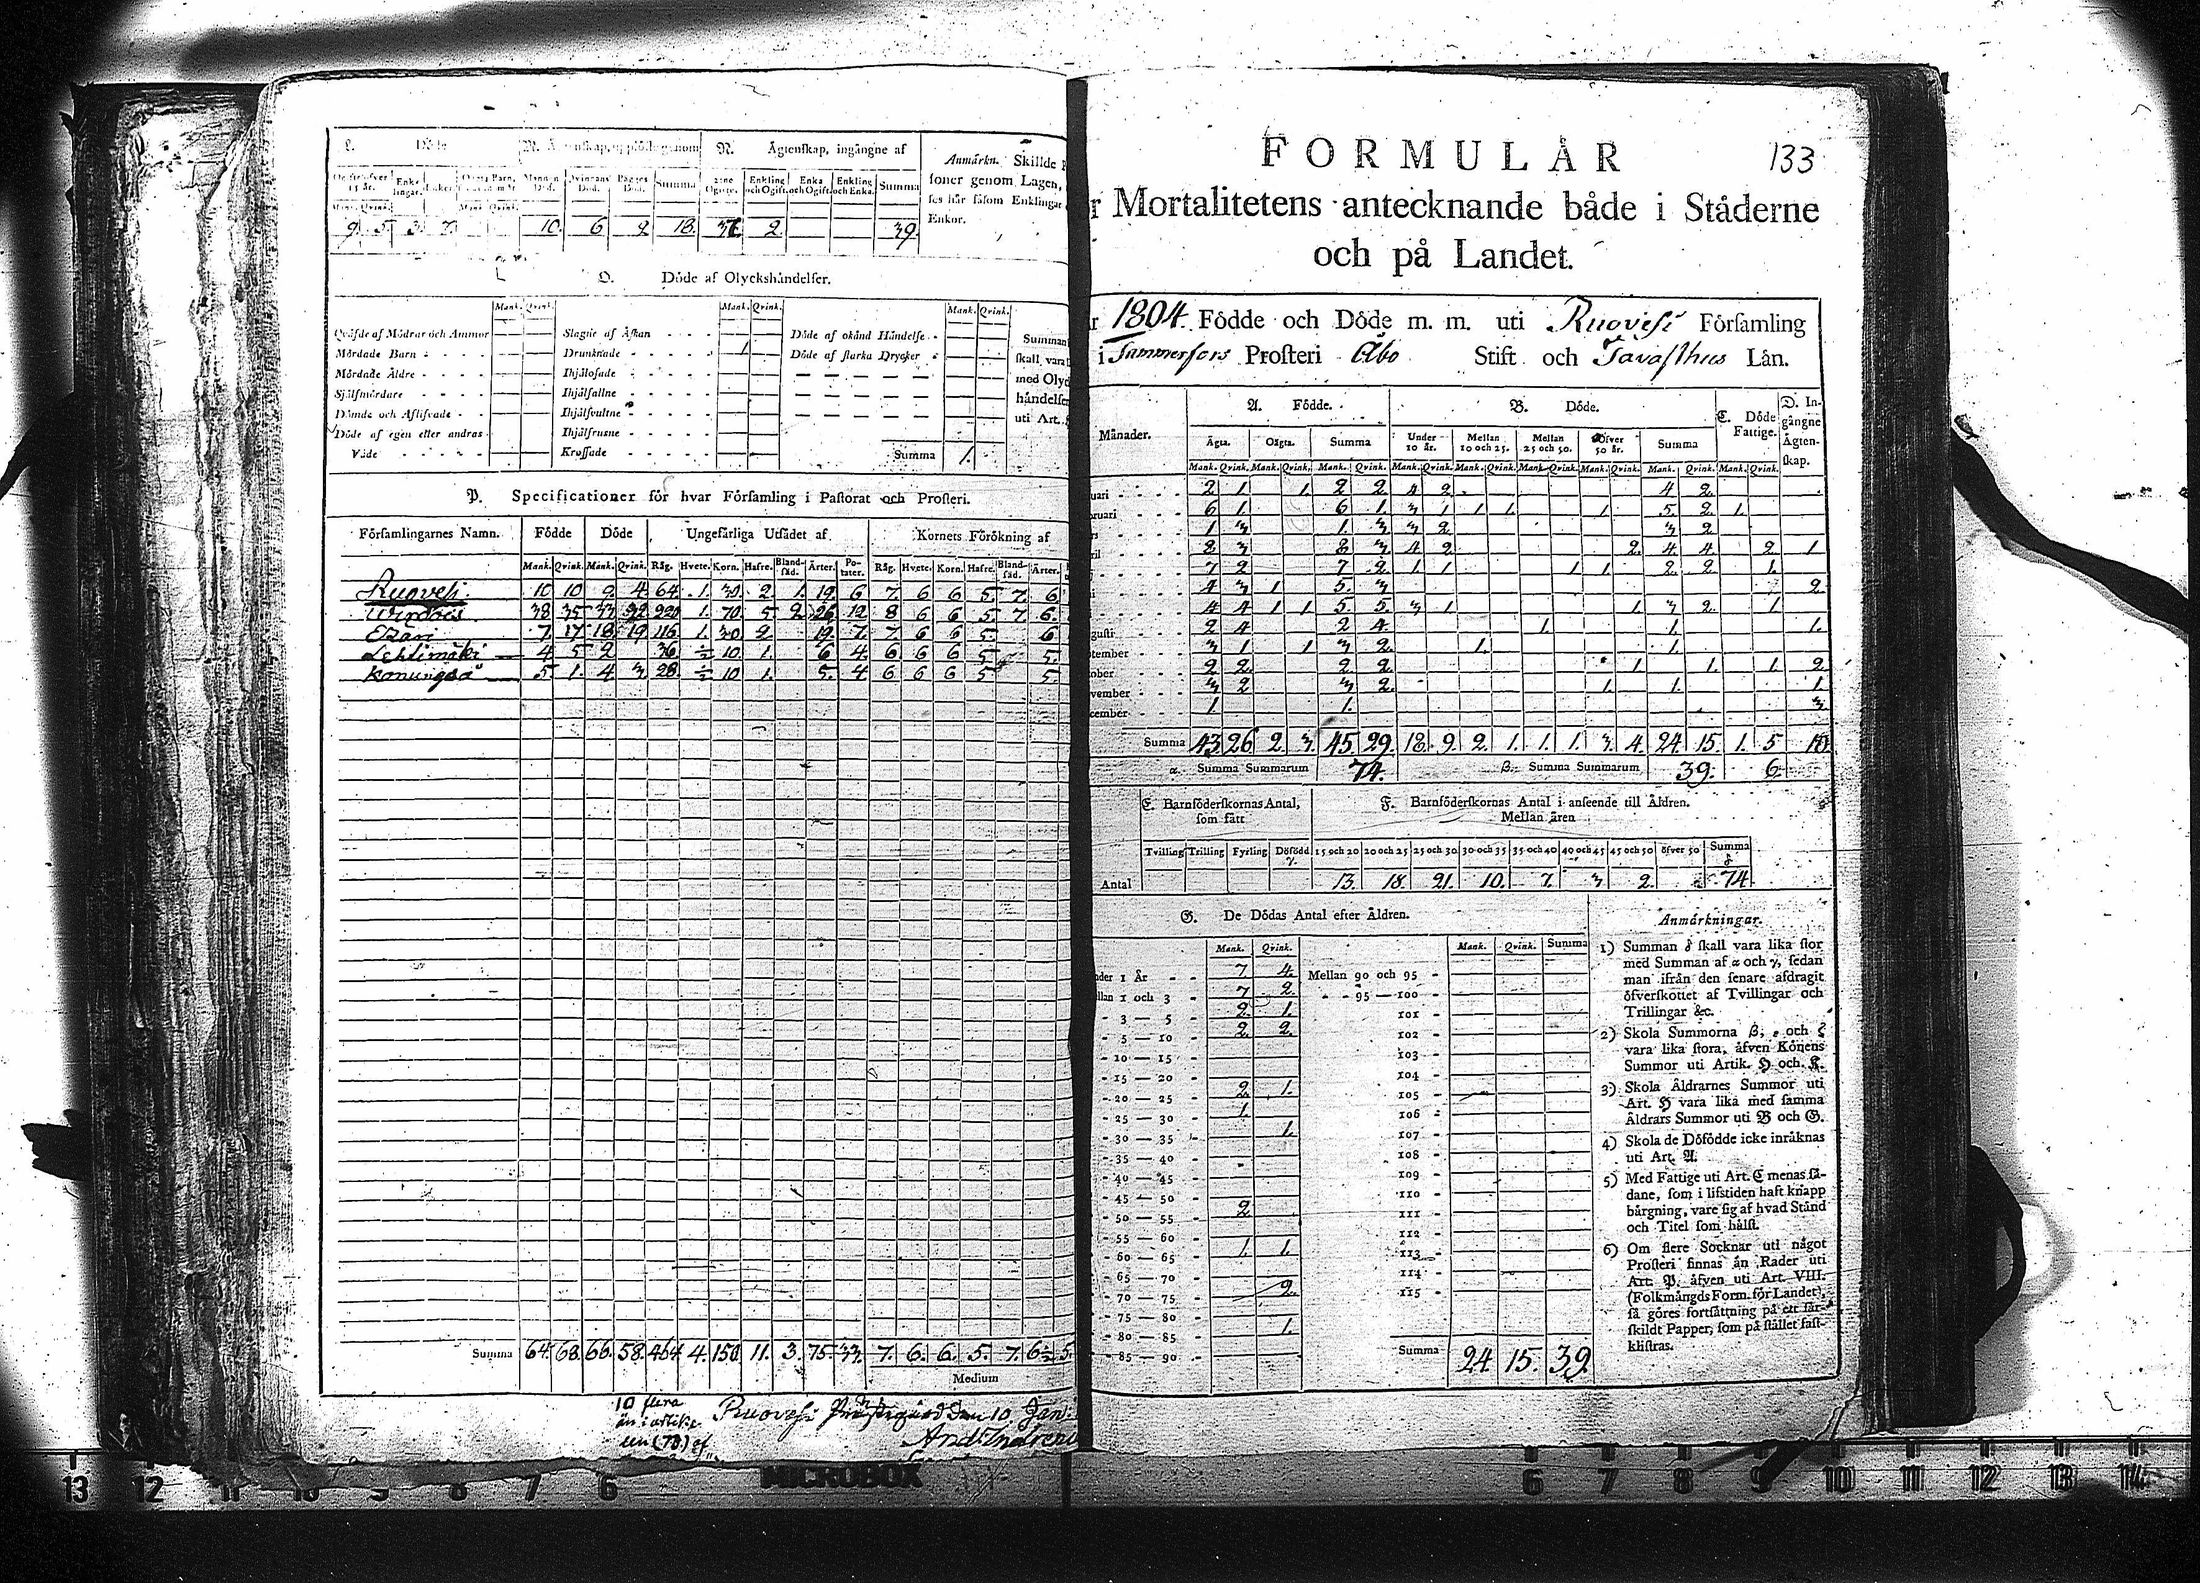 L. Döde
M. Ägtenskap, upplöste genom
N. Ägtenskap, ingångne af
Anmärkn. Skillde
soner genom Lagen,
ses här såsom Enklingar
Enkor.
Mannens Död. Qvinnans Död. Summa Enkling och Ogift. Enka och Ogift. Enkling och Enka. Summa
9. 5. 3. 7. 10. 6. 2. 18. 37. 2. 39.
O. Döde af Olyckshändelser.
Mank. Qvink. Mank. Qvink. Mank. Qvink.
Qväfde af Mödrar och Ammor Slagne af Åskan Döde af okänd Händelse
Mördade Barn Drunknade 1 Döde af starka Drycker
Mördade Äldre Ihjälosade
Självmördare Ihjälfallne
Dömde och Aflifvade Ihjälsvultne
Döde af egen eller andras Ihjälfrusne
Våde Krossade Summa 1.
Summan
skall vara
med Olyc
händelser
uti Art.
P. Specificationer för hvar Församling i Pastorat och Prosteri.
Församlingarnes Namn. Födde Döde Ungefärliga Utsädet af Kornets Förökning af
Mank. Qvink. Mank. Qvink. Råg. Hvete. Korn. Hafre. Blandsäd. Ärter. Potater. Råg. Hvete. Korn. Hafre. Blandsäd. Ärter.
Ruovesi 10 10 9 4 64. 1. 30. 2. 1. 19. 6 7. 6 6 5. 7. 6
Wirdois 38 35 33 32 220 1. 70. 5. 2. 26 12 8 6 6 5. 7 6.
Ezari 7. 17 18. 19 116. 1. 30 2. 19. 7. 7. 6 6 5. 6
Lehtimäki 4 5 2 36 ½ 10 1. 6 4 6 6 6 5 5.
Konungså 5 1. 4 3 28 ½ 10 1. 5. 4 6 6 6 5 5
Summa 64. 68. 66. 58. 464. 4. 150. 11. 3. 75. 33. 7. 6. 6. 5. 7. 6½ 5.
Medium
10 flera
än i article
Ruovesi Prästegård den 10 Jan:
And: Indreni
FORMULÄR 133
r Mortalitetens antecknande både i Städerne
och på Landet.
r 1804. Födde och Döde m. m. uti Ruovesi Församling
i Tammerfors Prosteri Åbo Stift och Tavasthus Län.
Månader. A. Födde. B. Döde. C. Döde Fattige. D. Ingångne Ägtenskap.
Ägta. Oägta. Summa Under 10 år. Mellan 10 och 25. Mellan 25 och 50. Öfver 50 år. Summa
Mank. Qvink. Mank. Qvink. Mank. Qvink. Mank. Qvink. Mank. Qvink. Mank. Qvink. Mank. Qvink. Mank. Qvink. Mank. Qvink.
uari 2 1. 1. 2 2 4 2. 4 2.
bruari 6 1. 6 1. 3 1 1 1. 1. 5. 2 1.
rs 1 3 1. 3 3 2. 3 2
ril 2 3 2 3 4 2 2. 4 4 2 1
7 2 7 2. 1 1 1 1. 2 2 1.
ni 4 3 1 5. 3 2
4 4 1 1 5. 5. 3 1 1. 3 2. 1
gusti 2 4 2 4. 1. 1. 1.
ptember 3 1 1 3 2. 1. 1.
ober 2 2. 2 2. 1. 1. 1. 2
vember 3 2 3 2. 1. 1. 1
cember 1. 1. 3
Summa 43 26 2. 3. 45. 29. 18. 9. 2. 1. 1. 1. 3. 4. 24. 15. 1. 5 10
α. Summa Summarum 74. β. Summa Summarum 39. 6.
E. Barnföderskornas Antal, som fått
F. Barnföderskornas Antal i anseende till Åldren.
Mellan åren
Tvilling Trilling Fyrling Dödfödd γ. 15 och 20 20 och 25 25 och 30 30 och 35 35 och 40 40 och 45 45 och 50 öfver 50 Summa δ
Antal 13. 18. 21. 10. 7. 3 2. 74.
G. De Dödas Antal efter Åldren.
Mank. Qvink. Mank. Qvink. Summa
nder 1 År 7 4. Mellan 90 och 95
llan 1 och 3 7 2. 95 — 100
3 — 5 2. 1. 101
5 — 10 2. 2. 102
10 — 15 103
15 — 20 104
20 — 25 2. 1. 105
25 — 30 1. 106
30 — 35 1. 107
35 — 40 108
40 — 45 109
45 — 50 110
50 — 55 2. 111
55 — 60 112
60 — 65 1. 1. 113
65 — 70 114
70 — 75 2. 115
75 — 80
80 — 85 1.
85 — 90
Summa 24. 15. 39.
Anmärkningar.
1) Summan δ skall vara lika stor
med Summan af α och γ, sedan
man ifrån den senare afdragit
öfverskottet af Tvillingar och
Trillingar &c.
2) Skola Summorna β, ε och ζ
vara lika stora, äfven Könens
Summor uti Artik. H och K.
3) Skola Åldrarnes Summor uti
Art. H vara lika med samma
Åldrars Summor uti B och G.
4) Skola de Döfödde icke inräknas
uti Art. A.
5) Med Fattige uti Art. C menas sådane,
som i lifstiden haft knapp
bärgning, vare sig af hvad Stånd
och Titel som hälst.
6) Om flere Socknar uti något
Prosteri finnas än Rader uti
Art. P. äfven uti Art. VIII.
(Folkmängds Form. för Landet),
så göres fortsättning på ett särskildt
Papper, som på stället fastklistras.
MICROBOX
13 12 11 10 9 8 7 6
6 7 8 9 10 11 12 13 14